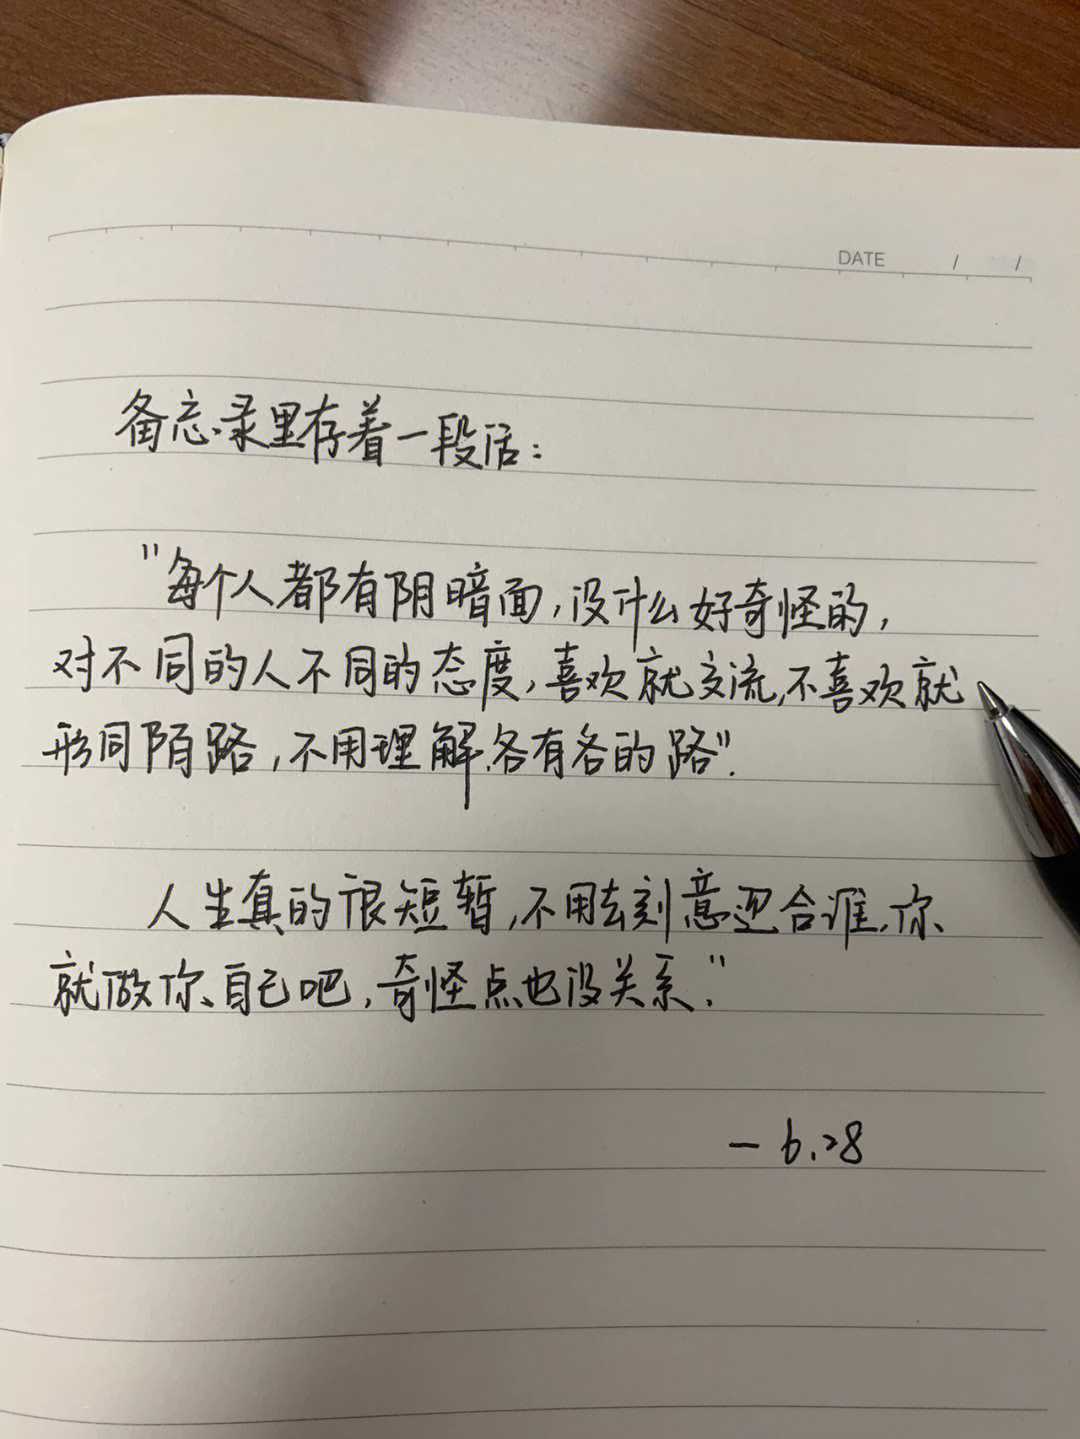 DATE / /
备忘录里存着一段话：
"每个人都有阴暗面，没什么好奇怪的，
对不同的人不同的态度，喜欢就交流，不喜欢就
形同陌路，不用理解，各有各的路"．
人生真的很短暂，不用去刻意迎合谁，你
就做你自己吧，奇怪点也没关系．"
— 6.28